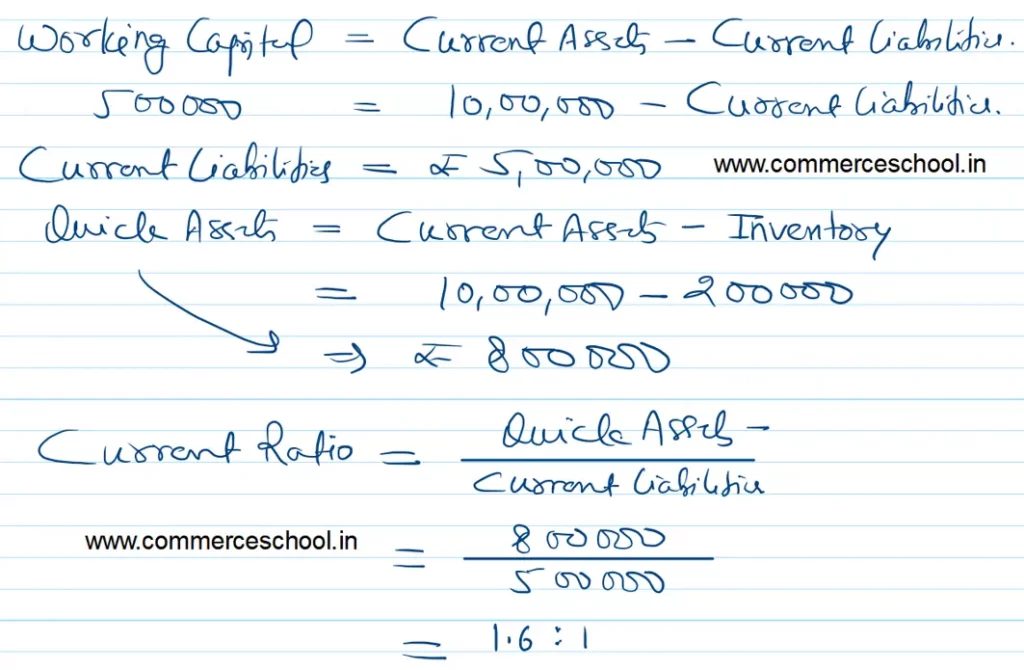 Working Capital = Current Assets – Current Liabilities.
500000 = 10,00,000 – Current Liabilities.
Current Liabilities = ₹ 5,00,000 www.commerceschool.in
Quick Assets = Current Assets – Inventory
= 10,00,000 – 200000
⇒ ₹ 800000
Current Ratio = Quick Assets –
Current Liabilities
www.commerceschool.in = 800000
500000
= 1.6 : 1